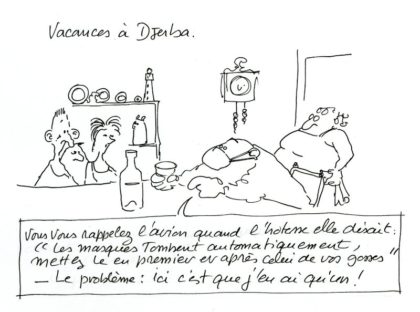 Vacances à Djerba.
Vous vous rappelez l'avion quand l'hotesse elle disait:
"Les masques Tombent automatiquement,
mettez le en premier et après celui de vos gosses"
— Le problème: ici c'est que j'en ai qu'un!